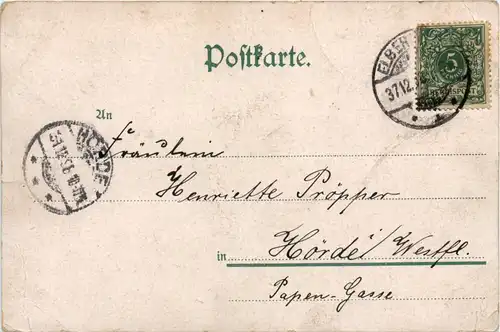 Postkarte.
An
Fräulein
Henriette Pröpper
in Hörde i/Westfl.
Papen-Gasse
5
REICHSPOST
HÖRDE